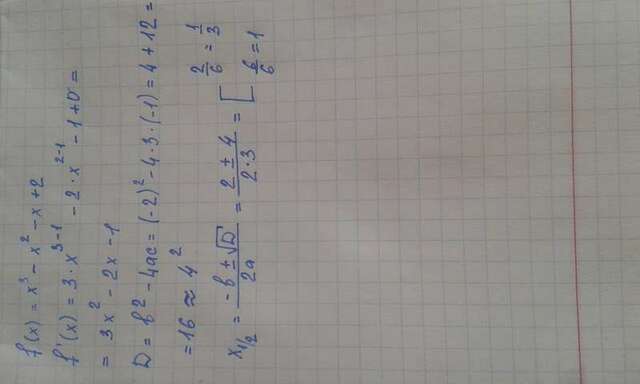 f(x) = x³ - x² - x + 2
f'(x) = 3·x³⁻¹ - 2·x²⁻¹ - 1 + 0 =
= 3x² - 2x - 1
D = b² - 4ac = (-2)² - 4·3·(-1) = 4 + 12 =
= 16 ≈ 4²
x₁/₂ = (-b ± √D)/(2a) = (2 ± 4)/(2·3) = [ 2/6 = 1/3
6/6 = 1